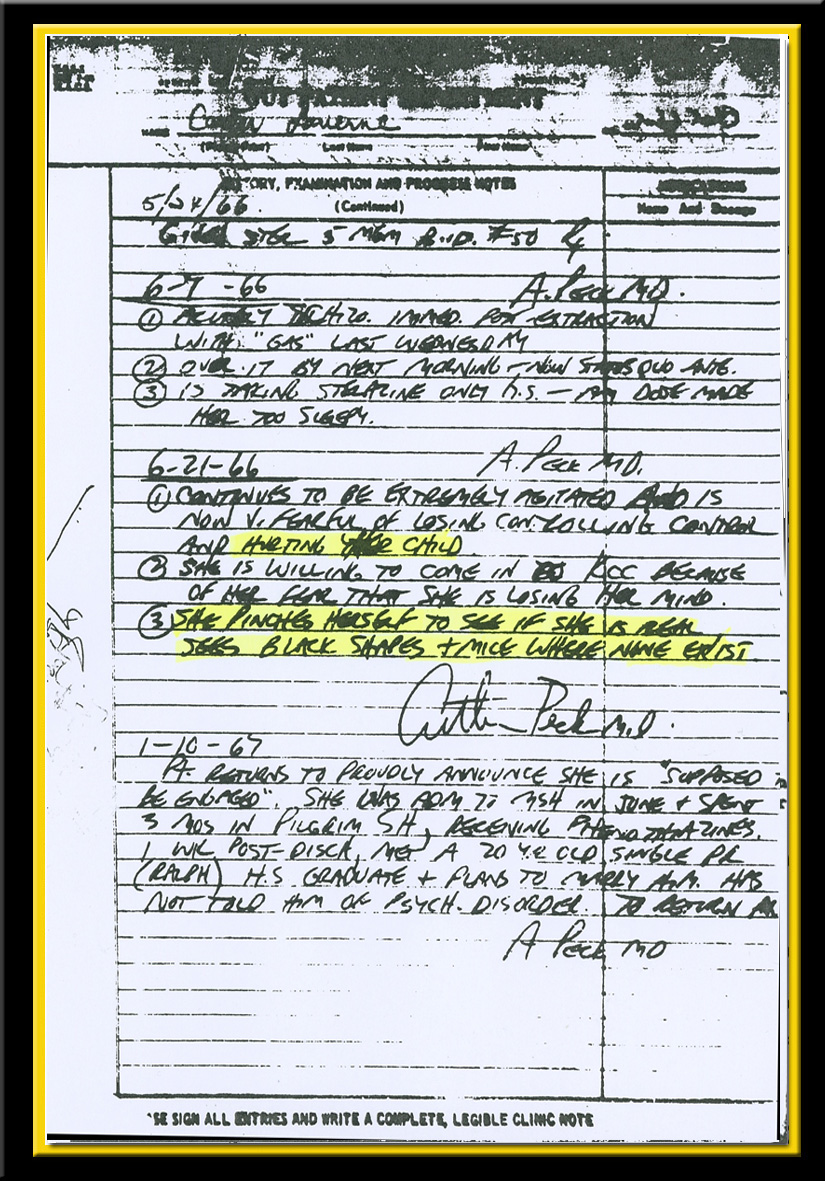 OUTPATIENT DEPARTMENT
NAME
Last Name
HISTORY, EXAMINATION AND PROGRESS NOTES
(Continued)
Name And Dosage
5/24/66
5 MGM B.I.D. #50
6-7-66 A. PECK MD.
① IMMED. POST-EXTRACTION
WITH "GAS" LAST WEDNESDAY
② OVER IT BY NEXT MORNING – NOW STATUS QUO ANTE.
③ IS TAKING STELAZINE ONLY H.S. – AM DOSE MADE
HER TOO SLEEPY.
6-21-66 A. PECK MD.
① CONTINUES TO BE EXTREMELY AGITATED AND IS
NOW V. FEARFUL OF LOSING CONTROLLING CONTROL
AND HURTING HER CHILD.
② SHE IS WILLING TO COME IN KCC BECAUSE
OF HER FEAR THAT SHE IS LOSING HER MIND.
③ SHE PINCHES HERSELF TO SEE IF SHE IS REAL
SEES BLACK SHAPES + MICE WHERE NONE EXIST.
Arthur Peck M.D.
1-10-67
PT. RETURNS TO PROUDLY ANNOUNCE SHE IS "SUPPOSED
BE ENGAGED". SHE WAS ADM TO MSH IN JUNE + SPENT
3 MOS IN PILGRIM SH, RECEIVING PHENOTHIAZINES.
1 WK POST-DISCH, MET A 20 YR OLD, SINGLE PR
(RALPH) H.S GRADUATE + PLANS TO MARRY HIM. HAS
NOT TOLD HIM OF PSYCH. DISORDER. TO RETURN
A PECK MD
SE SIGN ALL ENTRIES AND WRITE A COMPLETE, LEGIBLE CLINIC NOTE